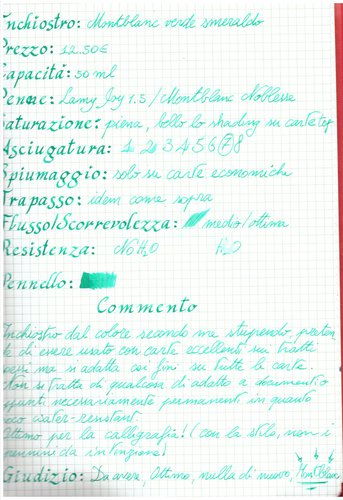 Inchiostro: Montblanc verde smeraldo
Prezzo: 12.50€
Capacità: 50 ml
Penne: Lamy Joy 1.5 / Montblanc Noblesse
Saturazione: piena, bello lo shading su carte
Asciugatura: 1 2 3 4 5 6 7 8
Spiumaggio: solo su carte economiche
Trapasso: idem come sopra
Flusso/Scorrevolezza: medio/ottima
Resistenza: No H2O H2O
Pennello:
Commento
Inchiostro dal colore secondo me stupendo,
di essere usato con carte eccellenti sui tratti
ma si adatta coi fini su tutte le carte.
Non si tratta di qualcosa di adatto a documenti o
necessariamente permanenti in quanto
poco water-resistant.
Ottimo per la calligrafia! (con la stilo, non i
pennini da intinzione!
Giudizio: Da avere, Ottimo, nulla di nuovo, Montblanc